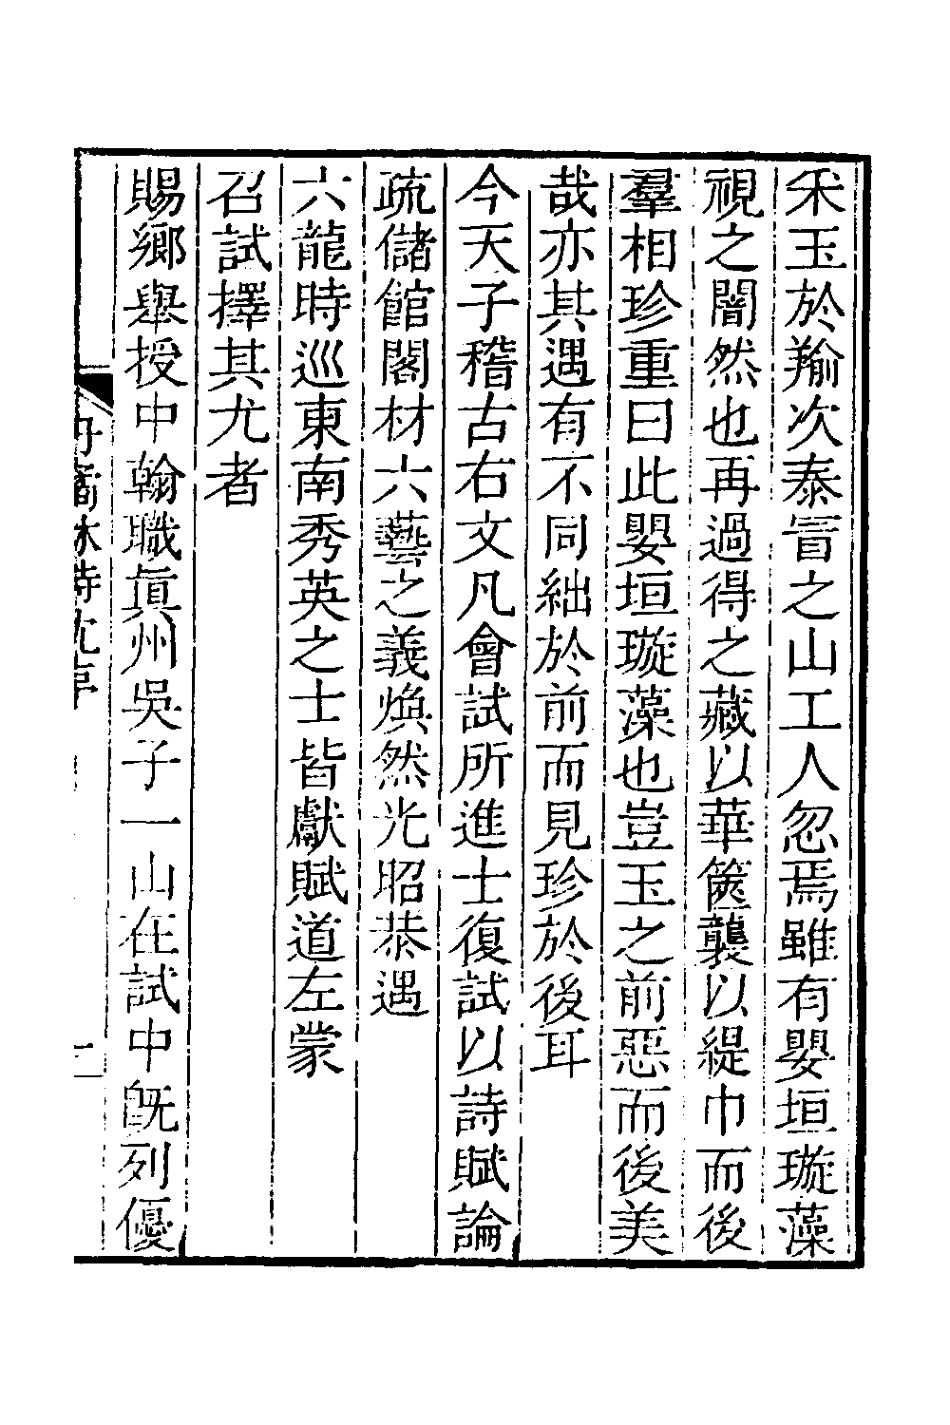 采玉於羭次泰冐之山工人忽焉雖有嬰垣璇藻
視之闇然也再過得之藏以華篋襲以緹巾而後
羣相珍重曰此嬰垣璇藻也豈玉之前惡而後美
哉亦其遇有不同絀於前而見珍於後耳
今天子稽古右文凡會試所進士復試以詩賦論
疏儲館閣材六藝之義煥然光昭恭遇
六龍時巡東南秀英之士皆獻賦道左蒙
召試擇其尤者
賜鄉舉授中翰職眞州吳子一山在試中旣列優